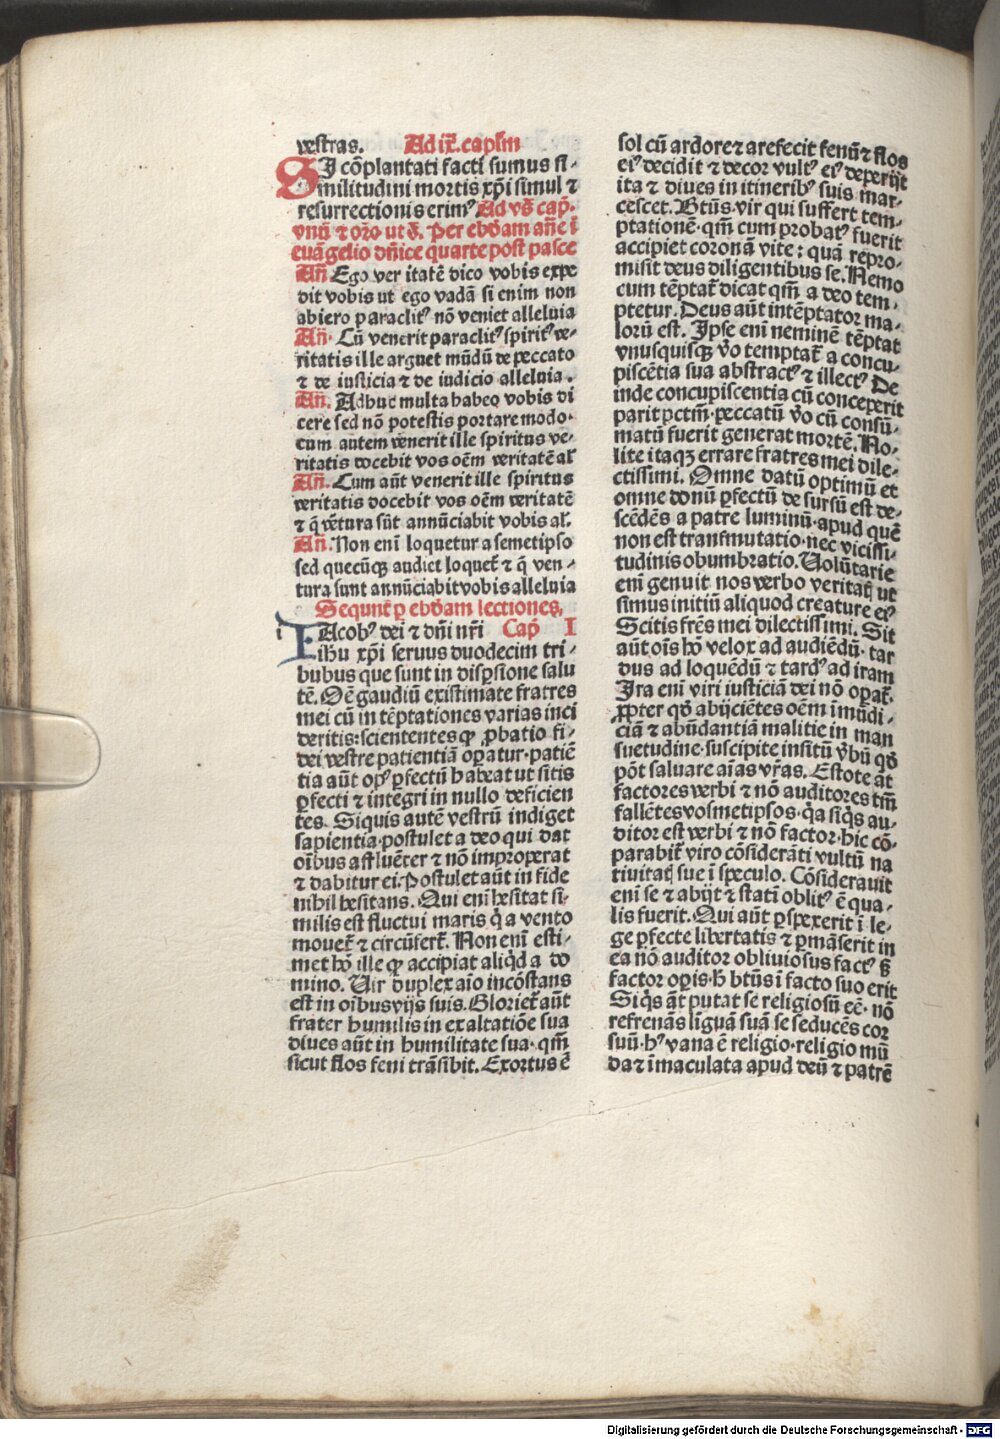 vestras. Ad ix. caplm
SI cõplantati facti sumus si-
militudini mortis xp̃i simul ⁊
resurrectionis erimꝰ Ad vs̃ cap̃.
vnũ ⁊ orõ ut s̃. Per ebd̃am añe ĩ
euãgelio dñice quarte post pasce
Añ Ego veritatẽ dico vobis expe
dit vobis ut ego vadã si enim non
abiero paraclitꝰ nõ veniet alleluia
Añ. Cũ venerit paraclitꝰ spiritꝰ ve-
ritatis ille arguet mũdũ de peccato
⁊ de iusticia ⁊ de iudicio alleluia.
Añ. Adhuc multa habeo vobis di
cere sed nõ potestis portare modo.
cum autem venerit ille spiritus ve-
ritatis docebit vos oẽm veritatẽ al̃
Añ. Cum aũt venerit ille spiritus
veritatis docebit vos oẽm veritatẽ
⁊ q̃ vẽtura sũt annũciabit vobis al̃.
Añ. Non enĩ loquetur a semetipso
sed quecũqꝫ audiet loquet̃ ⁊ q̃ ven-
tura sunt annũciabit vobis alleluia
Sequnt̃ ꝑ ebd̃am lectiones.
i IAcobꝰ dei ⁊ dñi nr̃i Cap̃ I
ih̃u xp̃i seruus duodecim tri-
bubus que sunt in disꝑsione salu
tẽ. Oẽ gaudiũ existimate fratres
mei cũ in tẽptationes varias inci
deritis: scientes ꝙ ꝓbatio fi-
dei vestre patientiã oꝑatur. patiẽ
tia aũt opꝰ ꝑfectũ habeat ut sitis
ꝑfecti ⁊ integri in nullo deficien
tes. Siquis autẽ vestrũ indiget
sapientia. postulet a deo qui dat
oĩbus affluẽter ⁊ nõ improperat
⁊ dabitur ei. Postulet aũt in fide
nihil hesitans. Qui enĩ hesitat si-
milis est fluctui maris q̃ a vento
mouet̃ ⁊ circũfert̃. Non enĩ esti-
met hõ ille ꝙ accipiat aliq̃d a do
mino. Vir duplex aĩo incõstans
est in oĩbus vijs suis. Gloriet̃ aũt
frater humilis in exaltatiõe sua
diues aũt in humilitate sua. qm̃
sicut flos feni trãsibit. Exortus ẽ
sol cũ ardore ⁊ arefecit fenũ ⁊ flos
eiꝰ decidit ⁊ decor vultꝰ eiꝰ deperijt
ita ⁊ diues in itineribꝰ suis mar-
cescet. Bt̃us vir qui suffert tem-
ptationẽ. qm̃ cum probatꝰ fuerit
accipiet coronã vite: quã repro-
misit deus diligentibus se. Nemo
cum tẽptat̃ dicat qm̃ a deo tem-
ptetur. Deus aũt intẽptator ma-
lorũ est. Ipse enĩ neminẽ tẽptat
vnusquisqꝫ ṽo temptat̃ a concu-
piscẽtia sua abstractꝰ ⁊ illectꝰ De
inde concupiscentia cũ conceperit
parit pctm̃. peccatũ ṽo cũ consũ-
matũ fuerit generat mortẽ. No-
lite itaqꝫ errare fratres mei dile-
ctissimi. Omne datũ optimũ et
omne donũ ꝑfectũ de sursũ est de-
scẽdẽs a patre luminũ. apud quẽ
non est transmutatio. nec vicissi-
tudinis obumbratio. Volũtarie
enĩ genuit nos verbo veritat̃ ut
simus initiũ aliquod creature eiꝰ
Scitis fr̃es mei dilectissimi. Sit
aũt oĩs hõ velox ad audiẽdũ. tar
dus ad loquẽdũ ⁊ tardꝰ ad iram
Ira enĩ viri iusticiã dei nõ oꝑat̃.
ꝓpter qđ abijciẽtes oẽm ĩmũdi-
ciã ⁊ abũdantiã malitie in man
suetudine. suscipite insitũ ṽbũ qđ
põt saluare aĩas vr̃as. Estote ãt
factores verbi ⁊ nõ auditores tm̃
fallẽtes vosmetipsos. q̃a siq̃s au-
ditor est verbi ⁊ nõ factor. hic cõ-
parabit̃ viro cõsiderãti vultũ na
tiuitat̃ sue ĩ speculo. Cõsiderauit
enĩ se ⁊ abijt ⁊ statĩ oblitꝰ ẽ qua-
lis fuerit. Qui aũt ꝑspexerit ĩ le-
ge ꝑfecte libertatis ⁊ ꝑmãserit in
ea nõ auditor obliuiosus factꝰ sꝫ
factor oꝑis. h̃ bt̃us ĩ facto suo erit
Siq̃s ãt putat se religiosũ eẽ. nõ
refrenãs lĩguã suã se seducẽs cor
suũ. hꝰ vana ẽ religio. religio mũ
da ⁊ ĩmaculata apud deũ ⁊ patrẽ
Digitalisierung gefördert durch die Deutsche Forschungsgemeinschaft - DFG